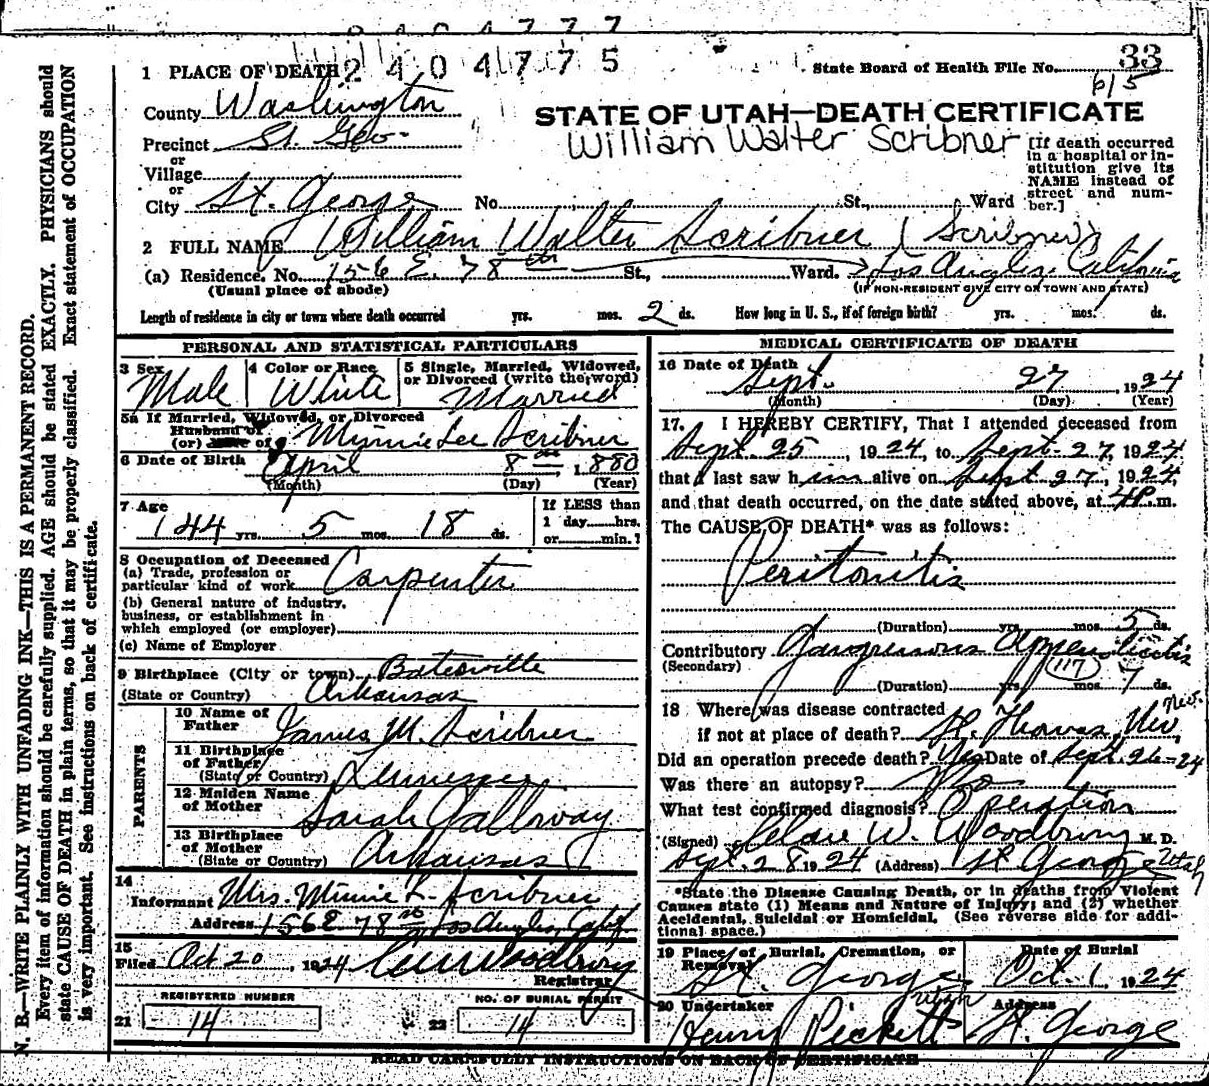 2404775
State Board of Health File No. 33
615
1 PLACE OF DEATH
County Washington
STATE OF UTAH—DEATH CERTIFICATE
Precinct St. Geo.
William Walter Scribner
or
Village
or
City St. George No. St., Ward
[If death occurred in a hospital or institution give its NAME instead of street and number.]
2 FULL NAME William Walter Scribner (Scribner)
(a) Residence. No. 156 E. 78th St., Ward. Los Angles, California
(Usual place of abode) (IF NON-RESIDENT GIVE CITY OR TOWN AND STATE)
Length of residence in city or town where death occurred yrs. mos. 2 ds. How long in U. S., if of foreign birth? yrs. mos. ds.
PERSONAL AND STATISTICAL PARTICULARS
3 Sex Male
4 Color or Race White
5 Single, Married, Widowed, or Divorced (write the word) Married
5a If Married, Widowed, or Divorced
Husband of
(or) of Mynnie Lee Scribner
6 Date of Birth April 8 1880
(Month) (Day) (Year)
7 Age 44 yrs. 5 mos. 18 ds.
If LESS than
1 day hrs.
or min.?
8 Occupation of Deceased
(a) Trade, profession or
particular kind of work Carpenter
(b) General nature of industry,
business, or establishment in
which employed (or employer)
(c) Name of Employer
9 Birthplace (City or town) Batesville
(State or Country) Arkansas
PARENTS
10 Name of
Father James M. Scribner
11 Birthplace
of Father
(State or Country) Tennessee
12 Maiden Name
of Mother Sarah Galloway
13 Birthplace
of Mother
(State or Country) Arkansas
14
Informant Mrs. Minnie L. Scribner
Address 156 E 78 Los Angles, Calif
15
Filed Oct 20, 1924
Registrar
REGISTERED NUMBER
21 14
NO. OF BURIAL PERMIT
22 14
MEDICAL CERTIFICATE OF DEATH
16 Date of Death
Sept. 27 1924
(Month) (Day) (Year)
17. I HEREBY CERTIFY, That I attended deceased from
Sept. 25, 1924, to Sept. 27, 1924
that I last saw him alive on Sept 27, 1924,
and that death occurred, on the date stated above, at 4P. m.
The CAUSE OF DEATH* was as follows:
Peritonitis
(Duration) yrs. mos. 5 ds.
Contributory Gangrenous Appendicitis
(Secondary) (117)
(Duration) yrs. mos. 7 ds.
18 Where was disease contracted
if not at place of death? St. Thomas, Nev. Nev.
Did an operation precede death? Yes Date of Sept. 26-24
Was there an autopsy? No
What test confirmed diagnosis? Operation
(Signed) Clare W. Woodbury M. D.
Sept. 28 1924 (Address) St George Utah
*State the Disease Causing Death, or in deaths from Violent
Causes state (1) Means and Nature of Injury; and (2) whether
Accidental, Suicidal or Homicidal. (See reverse side for addi-
tional space.)
19 Place of Burial, Cremation, or
Removal St. George Utah
Date of Burial
Oct. 1 1924
20 Undertaker
Henry Pickett
Address
St. George
READ CAREFULLY INSTRUCTIONS ON BACK OF CERTIFICATE
N. B.—WRITE PLAINLY WITH UNFADING INK—THIS IS A PERMANENT RECORD.
Every item of information should be carefully supplied. AGE should be stated EXACTLY. PHYSICIANS should
state CAUSE OF DEATH in plain terms, so that it may be properly classified. Exact statement of OCCUPATION
is very important. See instructions on back of certificate.